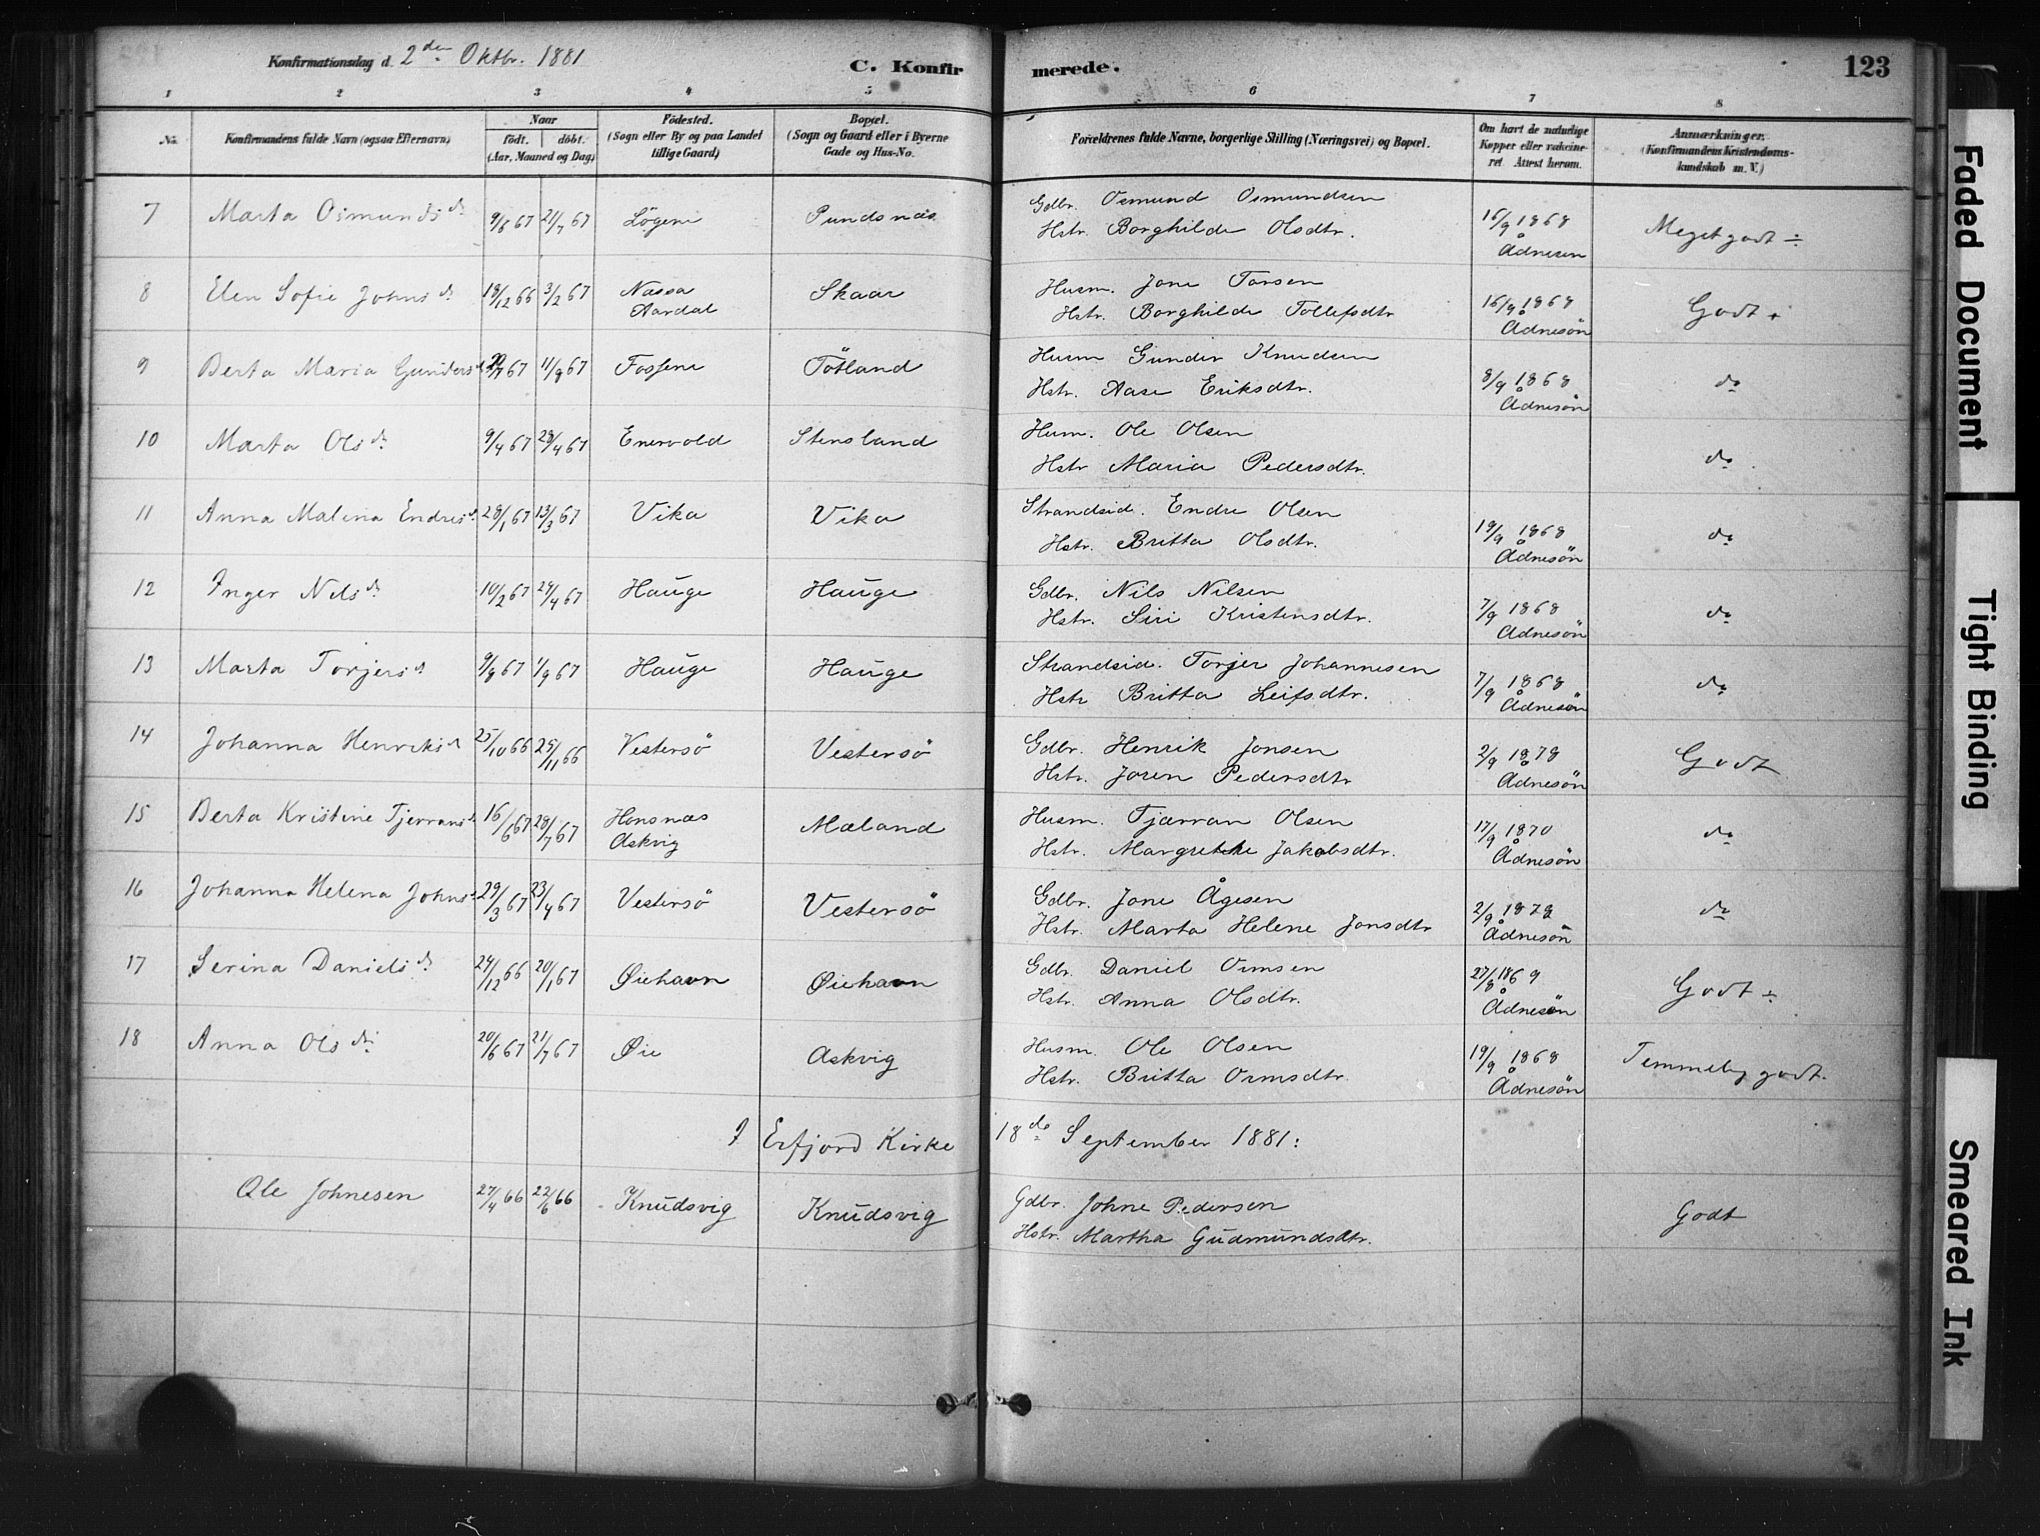 Konfirmationsdag d. 2den Oktbr. 1881
C. Konfirmerede.
123
1 2 3 4 5 6 7 8
No.
Konfirmandens fulde Navn (ogsaa Efternavn)
Naar
födt. döbt.
(Aar, Maaned og Dag)
Födested.
(Sogn eller By og paa Landet
tillige Gaard)
Bopæl.
(Sogn og Gaard eller i Byerne
Gade og Hus-No.
Forældrenes fulde Navne, borgerlige Stilling (Næringsvei) og Bopæl.
Om havt de naturlige
Kopper eller vakcine-
ret. Attest herom.
Anmærkninger.
(Konfirmandens Kristendoms-
kundskab m. V.)
7 Marta Osmundsdr 9/6 67 21/7 67 Lögene Pundsnæs Gdbr. Osmund Osmundsen
Hstr. Borghilde Olsdtr. 16/9 1868 Ådnesen Meget godt ÷
8 Elen Sofie Johnsdr 18/12 66 3/2 67 Nassa Aardal Skaar Husm. Jone Torsen
Hstr. Borghilde Tollefsdtr 16/9 1868 Ådnesön Godt +
9 Berta Maria Gundersdr 67 11/8 67 Fossene Tötland Husm Gunder Knudsen
Hstr. Aase Eriksdtr. 8/9 1868 Ådnesön do
10 Marta Olsdr 9/4 67 28/4 67 Enervold Stensland Husm. Ole Olsen
Hstr Maria Pedersdtr. do
11 Anna Malena Endresdr 28/1 67 13/3 67 Vika Vika Strandsid. Endre Olsen
Hstr. Britta Olsdtr. 19/9 1868 Ådnesön do
12 Inger Nilsdr 10/2 67 24/4 67 Hauge Hauge Gdbr. Nils Nilsen
Hstr. Siri Kristensdtr. 7/9 1868 Ådnesön do
13 Marta Torjersdr 9/8 67 1/9 67 Hauge Hauge Strandsid. Torjer Johannesen
Hstr Britta Leifsdtr. 7/9 1868 Ådnesön do
14 Johanna Henriksdr 25/10 66 25/11 66 Vestersö Vestersö Gdbr. Henrik Jonsen
Hstr. Joren Pedersdtr 2/9 1878 Ådnesön Godt
15 Berta Kristine Tjerransdr 16/6 67 28/7 67 Honsnæs Askvig Mæland Husm. Tjærran Olsen
Hstr. Margrethe Jakobsdtr. 17/9 1870 Ådnesön do
16 Johanna Helena Johnsdr 29/3 67 23/4 67 Vestersö Vestersö Gdbr. Jone Ågesen
Hstr. Marta Helene Jonsdtr 2/9 1878 Ådnesön do
17 Serina Danielsdr 24/12 66 20/1 67 Øiehavn Øiehavn Gdbr. Daniel Ormsen
Hstr. Anna Olsdtr. 27/8 1869 Ådnesön Godt ÷
18 Anna Olsdr 20/6 67 21/7 67 Øie Askvig Husm. Ole Olsen
Hstr. Britta Ormsdtr 19/9 1868 Ådnesön Temmelig godt.
I Erfjord Kirke 18de September 1881:
Ole Johnesen 27/4 66 22/6 66 Knudsvig Knudsvig Gdbr. Johne Pedersen
Hstr. Martha Gudmundsdtr. Godt
Faded Document
Tight Binding
Smeared Ink